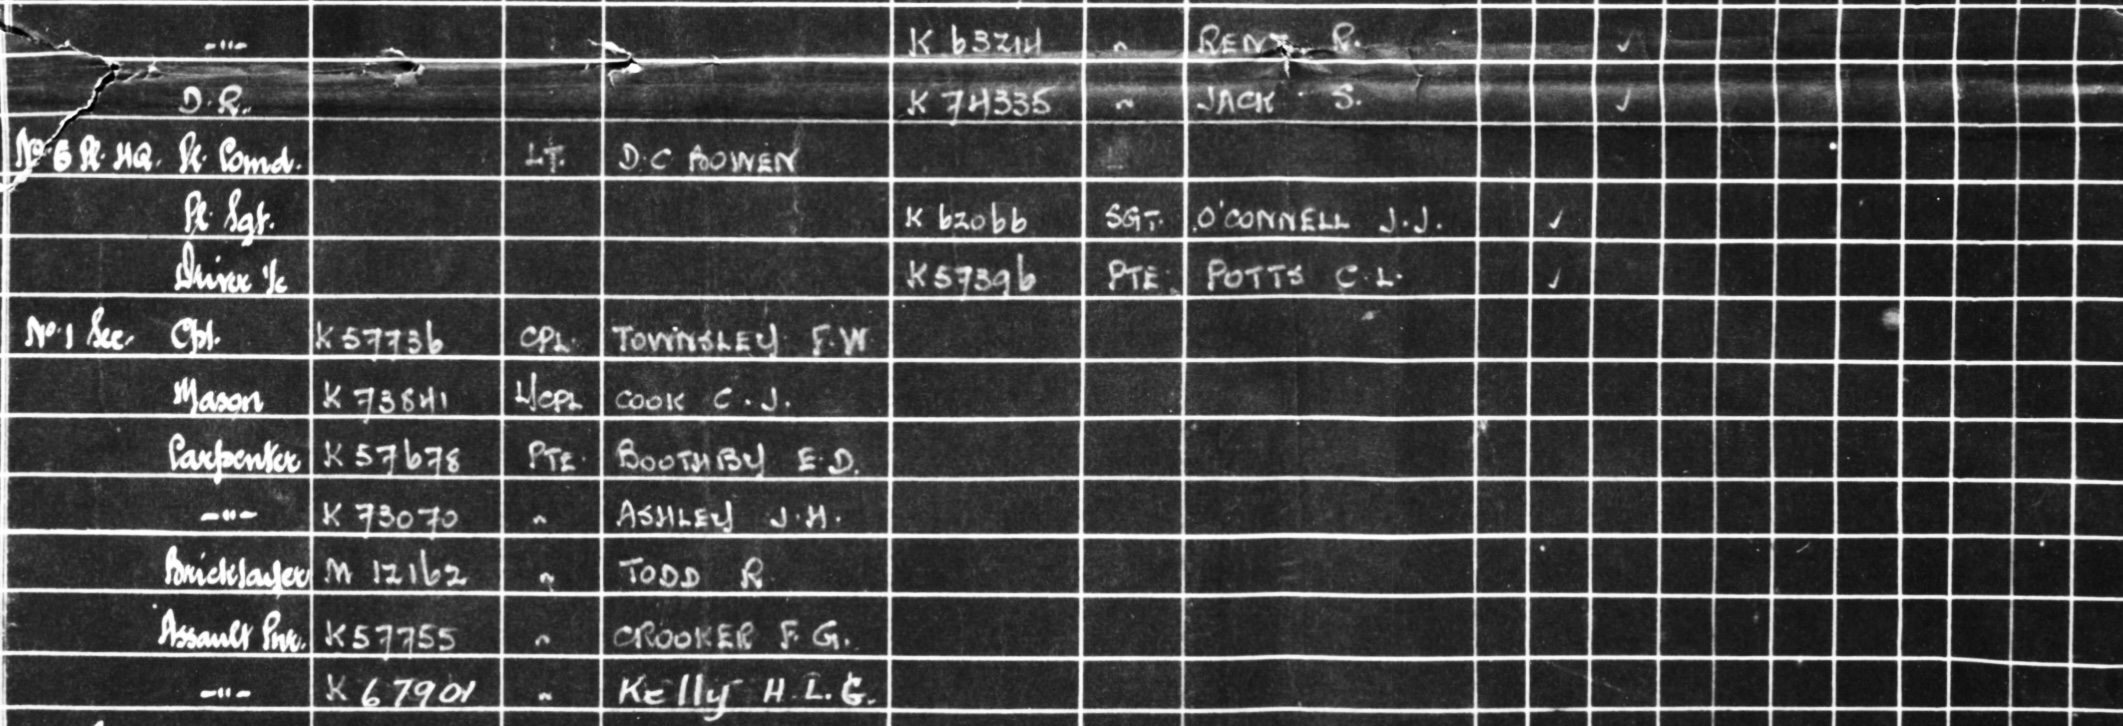 -"- K 63214 " R.
D.R. K 74335 " JACK S.
No. 6 Pl. HQ. Pl. Comd. LT. D.C BOWEN
Pl. Sgt. K 62066 SGT. O'CONNELL J.J. ✓
Driver i/c K57396 PTE POTTS C.L. ✓
No. 1 Sec. Cpl. K57736 CPL. TOWNSLEY F.W
Mason K 73841 L/CPL COOK C.J.
Carpenter K 57678 PTE. BOOTHBY E.D.
-"- K 73070 " ASHLEY J.H.
Bricklayer M 12162 " TODD R
Assault Pnr. K57755 " CROOKER F.G.
-"- K 67901 " Kelly H.L.G.